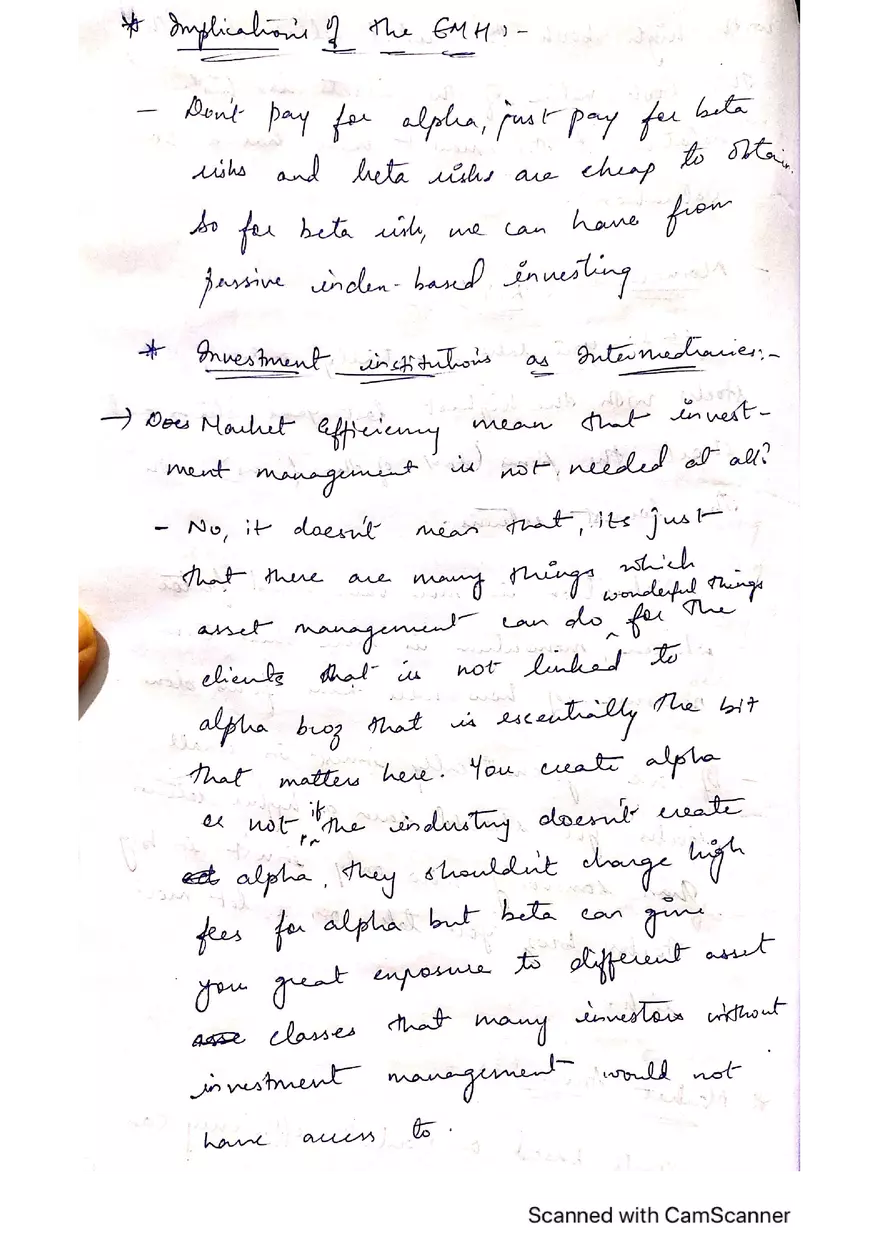 * Implications of the EMH :-
- Don't pay for alpha, just pay for beta
risks and beta risks are cheap to obtain.
So for beta risk, we can have from
passive index-based investing
* Investment institutions as Intermediaries:-
→ Does Market Efficiency mean that invest-
ment management is not needed at all?
- No, it doesn't mean that, its just
that there are many things which
wonderful things
asset management can do ^ for the
clients that is not linked to
alpha bcoz that is escentially the bit
that matters here. You create alpha
or not, if the industry doesn't create
alpha, they shouldn't charge high
fees for alpha but beta can give
you great exposure to different asset
classes that many investors without
investment management would not
have access to.
Scanned with CamScanner